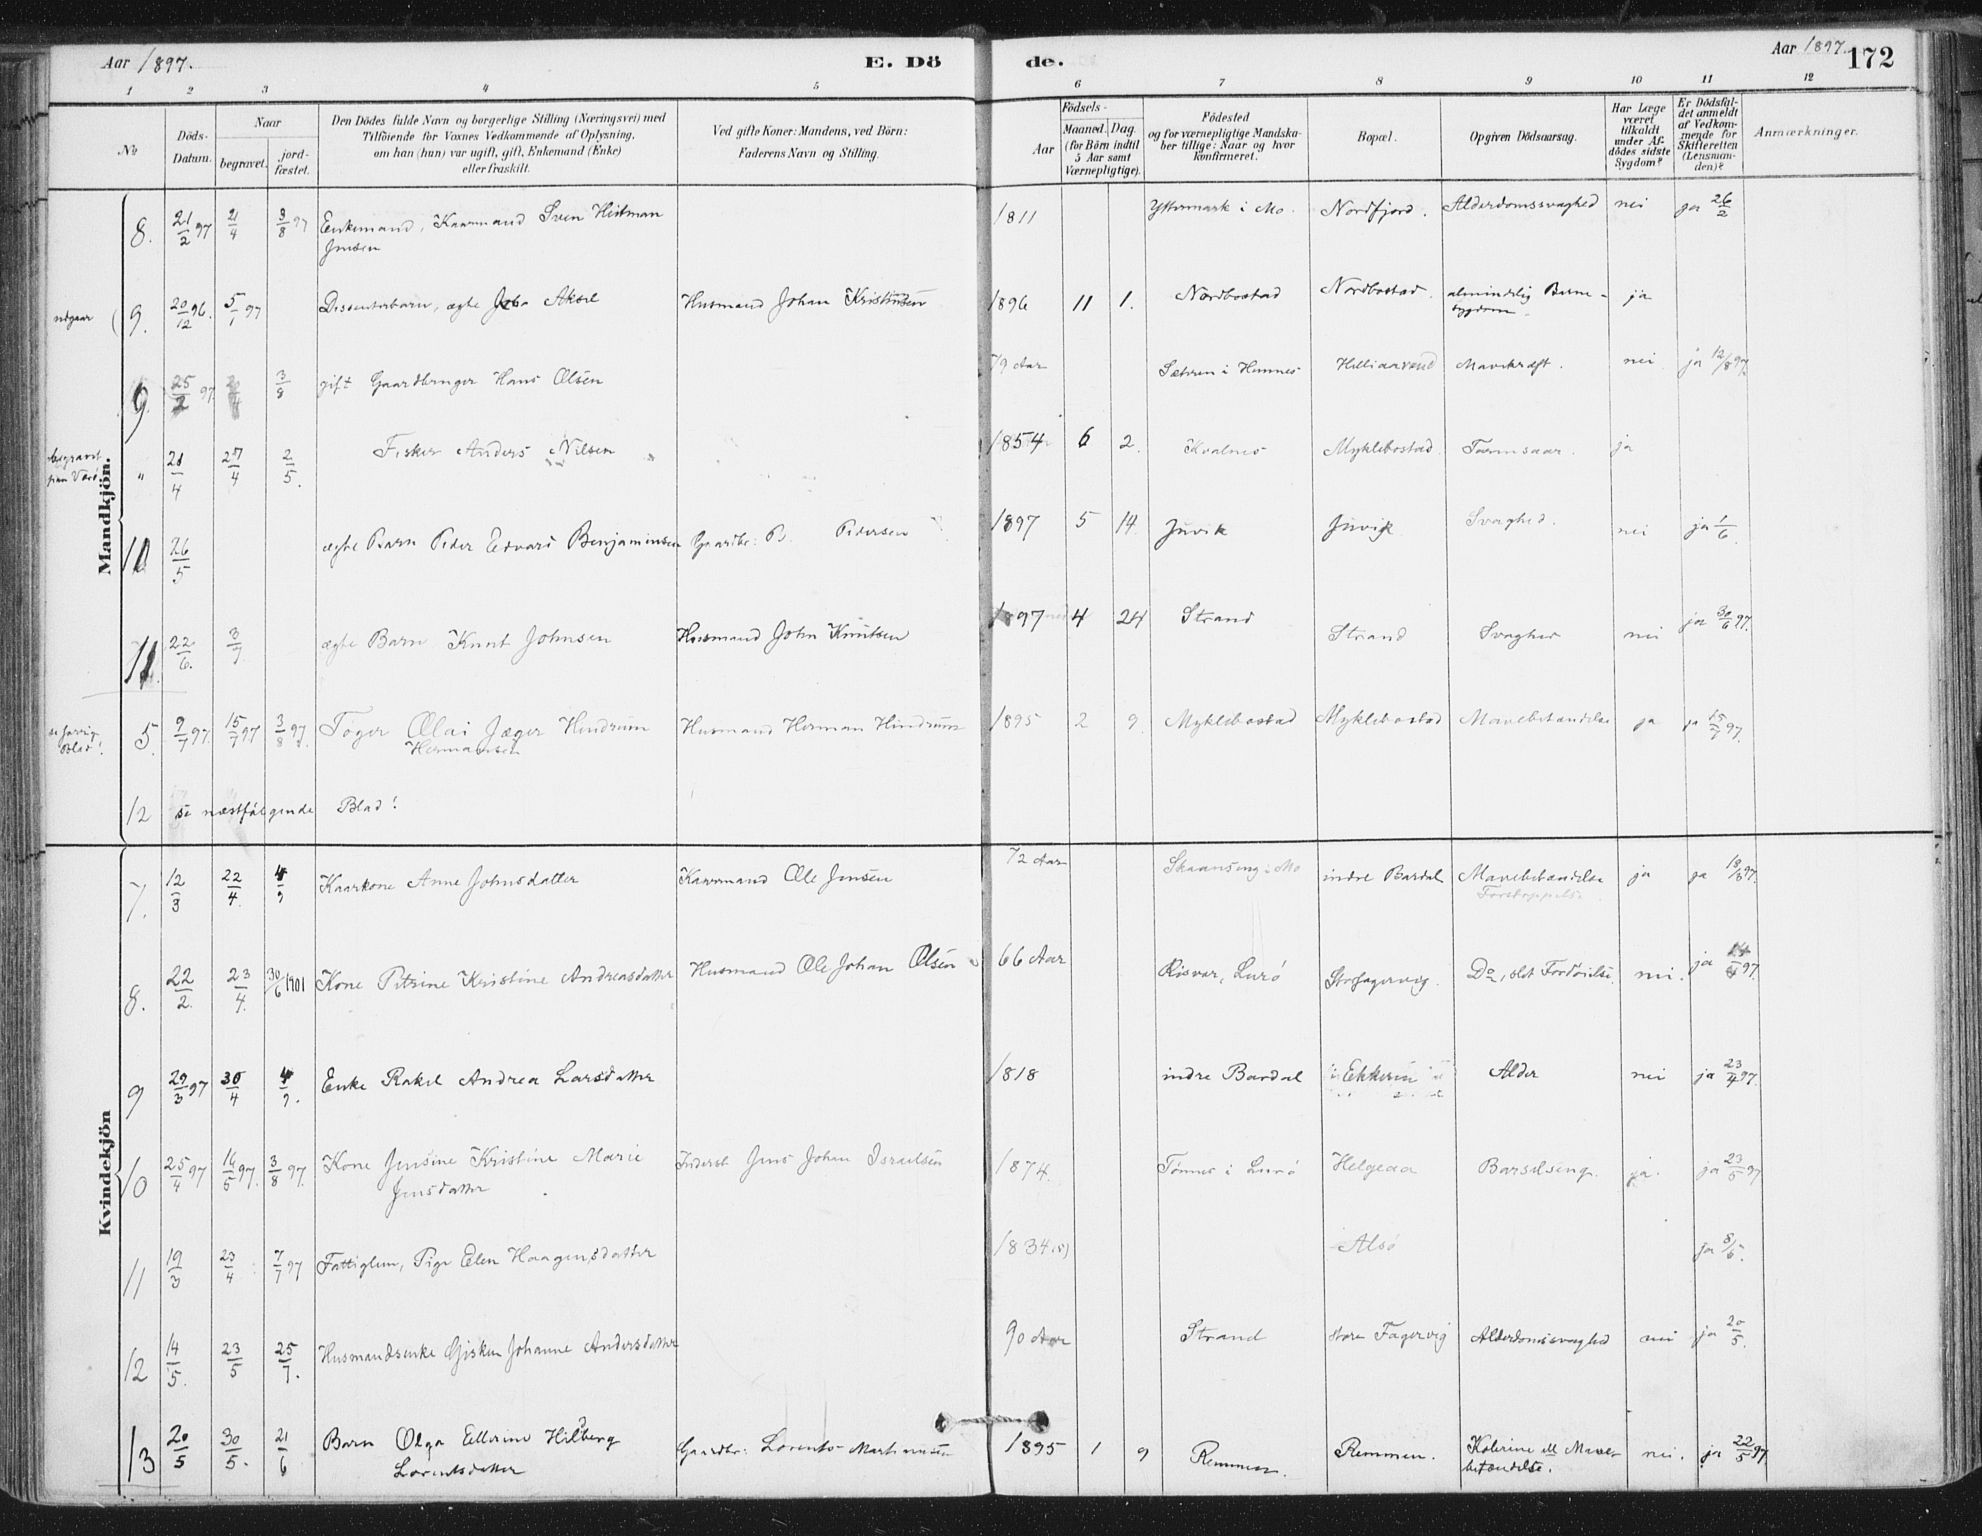 Aar 1897.
E. Dö
de.
Aar 1897.
172
1 2 3 4 5 6 7 8 9 10 11 12
No
Döds-Datum.
Naar
begravet.
jord-fæstet.
Den Dödes fulde Navn og borgerlige Stilling (Næringsvei) med
Tilföiende for Voxnes Vedkommende af Oplysning,
om han (hun) var ugift, gift, Enkemand (Enke)
eller fraskilt.
Ved gifte Koner: Mandens, ved Börn:
Faderens Navn og Stilling.
Födsels-
Aar
Maaned. Dag.
(for Börn indtil
5 Aar samt
Værnepligtige).
Födested
og for værnepligtige Mandska-
ber tillige: Naar og hvor
konfirmeret.
Bopæl.
Opgiven Dödsaarsag.
Har Læge
været
tilkaldt
under Af-
dödes sidste
Sygdom?
Er Dödsfal-
det anmeldt
af Vedkom-
mende for
Skifteretten
(Lensman-
den)?
Anmærkninger.
Mandkjön.
8. 21/2 97 21/4 3/8 97 Enkemand, Kaarmand Sven Heitman 1811 Yttermark i Mo. Nordfjord. Alderdomssvaghed nei ja 26/2
Jensen
udgaar 9. 20/12 96. 5/1 97 Dissenterbarn, ægte Aksel Husmand Johan Kristensen 1896 11 1. Nordbostad Nordbostad. almindelig Barne-
sygdom. ja
9 25/2 97 3/8 gift Gaardbruger Hans Olsen 79 Aar Sætren i Hemnes Mavekræft. nei ja 12/8 97.
begravet
paa Værø " 21/4 27/4 2/5. Fisker Anders Nilsen 1854 6 2. Kvalnes Myklebostad ja
10 26/5 ægte Barn Peder Edvard Benjaminsen Gaardbr: B. Pedersen 1897 5 14. Juvik Juvik Svaghed. nei ja 1/6.
11 22/6. 3/7 ægte Barn Knut Johnsen Husmand John Knutsen 1897 4 24 Strand Strand Svaghed nei ja 30/6 97.
se forrige
Blad! 5. 9/7 97. 15/7 97 3/8 97. Tøger Olai Jæger Hindrum Husmand Herman Hindrum 1895 2 9. Myklebostad Myklebostad Mavebetændelse ja ja 15/7 97.
Hermansen
12 se næstfølgende Blad!
Kvindekjön
7. 12/3 22/4. 4/9 Kaarkone Anne Johnsdatter Kaarmand Ole Jensen 72 Aar Skaanseng i Mo indre Bardal Mavebetændelse ja ja 18/3 97.
Forstoppelse
8. 22/2. 23/4. 30/6 1901 Kone Petrine Kristine Andreasdatter Husmand Ole Johan Olsen 66 Aar Risvær, Lurø Storfagervig. Do, slet Fordøielse. nei. ja 14/4 97.
9 29/3 97 30/4 4/9. Enke Rakel Andrea Larsdatter 1818 indre Bardal Ekkeren Alder nei ja 23/4 97.
10 25/4 97 16/5 97. 3/8 97. Kone Jensine Kristine Marie Inderst Jens Johan Israelsen 1874. Tonnes i Lurø Helgeaa Barselseng. ja. ja 23/5 97
Jensdatter
11 19/3 23/4 7/7 97 Fattiglem, Pige Elen Haagensdatter 1834 Alsø ja 8/5.
12 14/5. 23/5 25/7. Husmandsenke Gisken Johanne Andersdatter 90 Aar Strand store Fagervig Alderdomssvaghed nei ja 20/5.
13 20/5 30/5. 21/6 Barn Olga Ellerine Hilberg Gaardbr: Lorents Martinusen 1895 1 9 Remmen. Remmen. Kolerine ell Mave-
betændelse. nei. ja 22/5 97
Lorentsdatter